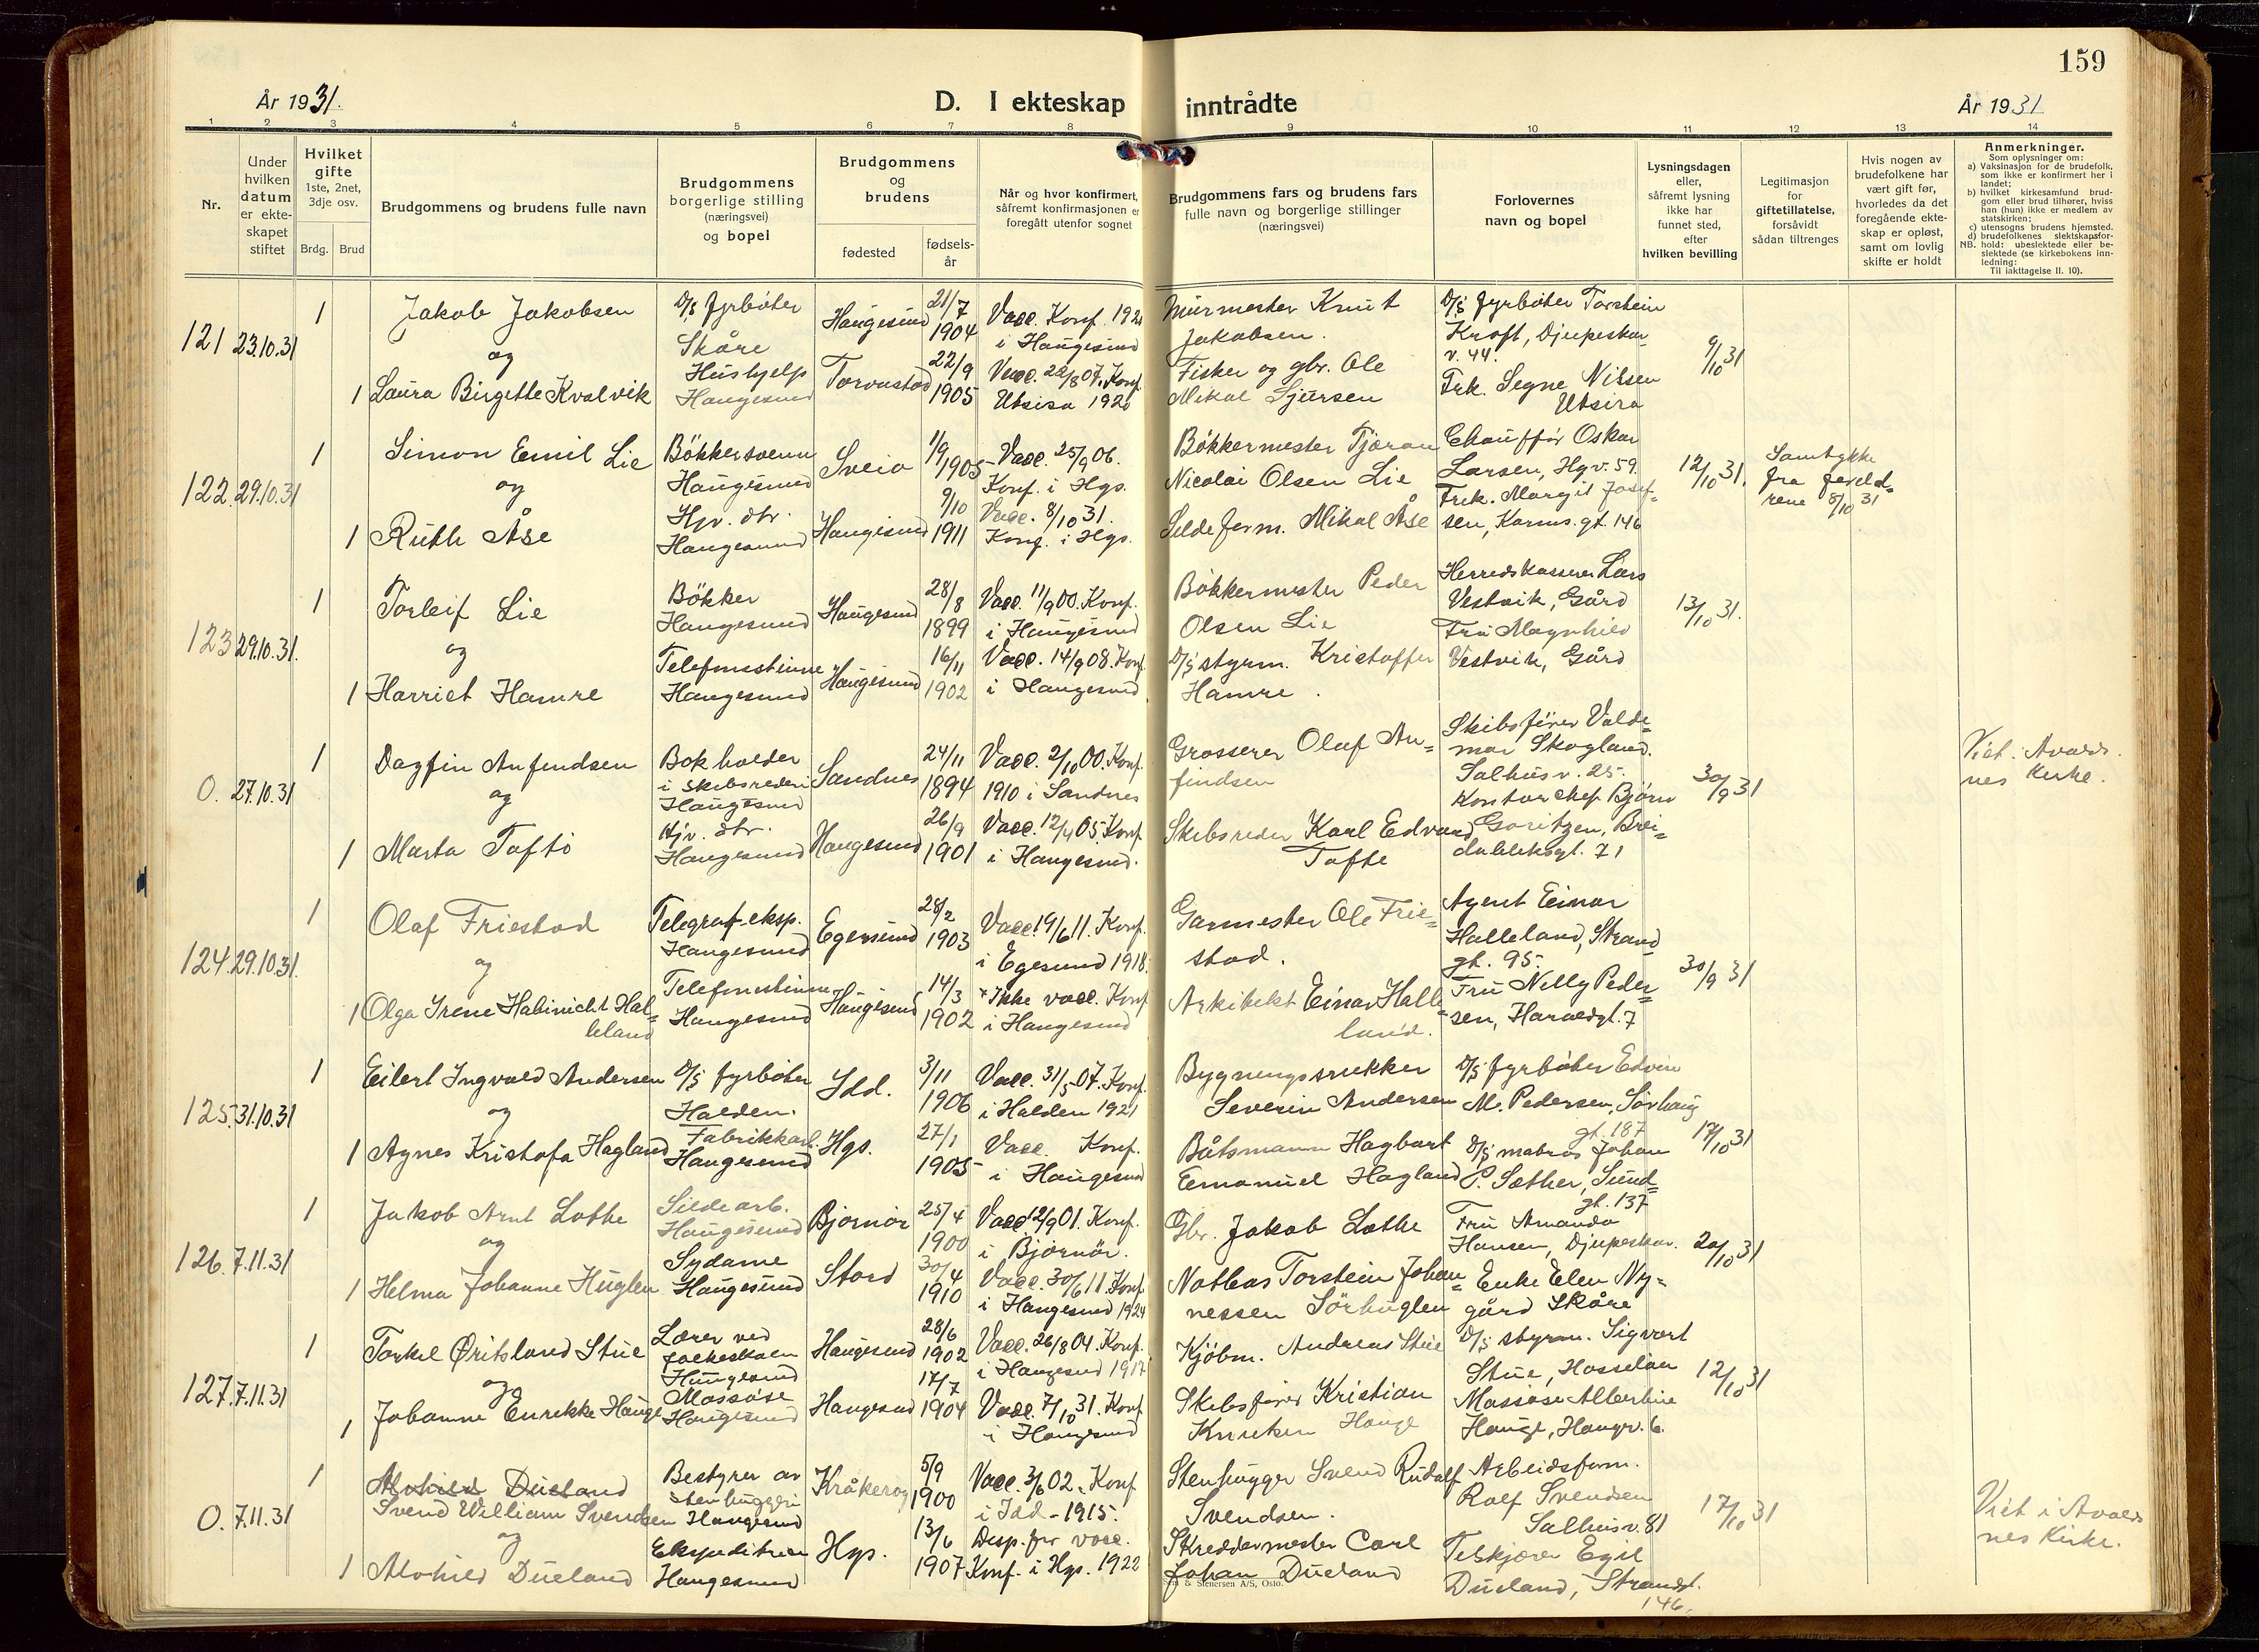 159
År 1931.
D. I ekteskap inntrådte
År 1931
1 2 3 4 5 6 7 8 9 10 11 12 13 14
Nr.
Under
hvilken
datum
er ekte-
skapet
stiftet
Hvilket
gifte
1ste, 2net,
3dje osv.
Brdg. Brud
Brudgommens og brudens fulle navn
Brudgommens
borgerlige stilling
(næringsvei)
og bopel
Brudgommens
og
brudens
fødested
fødsels-
år
Når og hvor konfirmert,
såfremt konfirmasjonen er
foregått utenfor sognet
Brudgommens fars og brudens fars
fulle navn og borgerlige stillinger
(næringsvei)
Forlovernes
navn og bopel
Lysningsdagen
eller,
såfremt lysning
ikke har
funnet sted,
efter
hvilken bevilling
Legitimasjon
for
giftetillatelse,
forsåvidt
sådan tiltrenges
Hvis nogen av
brudefolkene har
vært gift før,
hvorledes da det
foregående ekte-
skap er opløst,
samt om lovlig
skifte er holdt
Anmerkninger.
Som oplysninger om:
a) Vaksinasjon for de brudefolk,
som ikke er konfirmert her i
landet;
b) hvilket kirkesamfund brud-
gom eller brud tilhører, hviss
han (hun) ikke er medlem av
statskirken;
c) utensogns brudens hjemsted.
d) brudefolkenes slektskapsfor-
NB. hold: ubeslektede eller be-
slektede (se kirkebokens inn-
ledning:
Til iakttagelse II. 10).
121 23.10.31
1 Jakob Jakobsen
og
1 Laura Birgitte Kvalvik
D/s fyrbøter
Skåre
Hushjelp
Haugesund
Haugesund
Torvastad
21/7
1904
22/9
1905
Vacc. Konf. 192
i Haugesund
Vacc. 22/8 07. Konf.
Utsira 1920
Murmester Knut
Jakobsen.
Fisker og gbr. Ole
Mikal Sjursen
D/s fyrbøter Torstein
Kroft, Djupeskar
v. 44.
Frk. Segne Nilsen
Utsira
9/10 31
122. 29.10.31
1 Simon Emil Lie
og
1 Ruth Åse
Bøkkersvenn
Haugesund
Hjv. dtr.
Haugesund
Sveio
Haugesund
1/9
1905
9/10
1911
Vacc. 25/9 06.
Konf. i Hgs.
Vacc. 8/10 31.
Konf. i Hgs.
Bøkkermester Tjæran
Nicolai Olsen Lie
Sildeform. Mikal Åse
Chauffør Oskar
Larsen, Hgv. 59.
Frk. Margit Josef-
sen, Karms.gt. 146
12/10 31.
Samtykke
fra foreld-
rene 8/10 31
123 29.10.31.
1 Torleif Lie
og
1 Harriet Hamre
Bøkker
Haugesund
Telefonistinne
Haugesund
Haugesund
Haugesund
28/8
1899
16/11
1902
Vacc. 11/9 00. Konf.
i Haugesund
Vacc. 14/9 08. Konf.
i Haugesund
Bøkkermester Peder
Olsen Lie
D/s styrm. Kristoffer
Hamre.
Herredskasserer Lars
Vestvik, Gård
Fru Magnhild
Vestvik, Gård
13/10 31.
0. 27.10.31
1 Dagfin Anfindsen
og
1 Marta Toftö
Bokholder
i skibsrederi
Haugesund
Hjv. dtr.
Haugesund
Sandnes
Haugesund
24/11
1894
26/9
1901
Vacc. 2/10 00. Konf.
1910 i Sandnes
Vacc. 12/4 05. Konf.
i Haugesund.
Grosserer Olaf An-
findsen
Skibsreder Karl Edvard
Tofte
Skibsfører Valde-
mar Skogland.
Salhusv. 25.
Kontorchef Bjørn
Goritzen, Brei-
dablikgt. 71
30/9 31
Viet i Avalds-
nes Kirke.
124. 29.10.31.
1 Olaf Friestad
og
1 Olga Irene Habinicht Hal-
leland
Telegraf-eksp.
Haugesund
Telefonistinne
Haugesund
Egersund
Haugesund
28/2
1903
14/3
1902
Vacc. 19/6 11. Konf.
i Egesund 1918.
Ikke vacc. Konf
i Haugesund
Garmester Ole Frie-
stad.
Arkitekt Einar Halle-
land.
Agent Einar
Halleland, Strand-
gt. 95.
Fru Nelly Peder-
sen, Haraldgt. 7
30/9 31
125. 31.10.31
1 Eilert Ingvald Andersen
og
1 Agnes Kristofa Hagland
D/s fyrbøter
Halden.
Fabrikkarb.
Haugesund
Idd.
Hgs.
3/11
1906
27/1
1905
Vacc. 31/5 07. Konf.
i Halden 1921
Vacc. Konf.
i Haugesund
Bygningssnekker
Severin Andersen
Båtsmann Hagbart
Emanuel Hagland
D/s fyrbøter Edvin
M. Pedersen, Sørhaug
gt. 187
D/s matros Johan
P. Sæther, Sund-
gt. 137
17/10 31
126. 7.11.31
1 Jakob Arnt Lothe
og
1 Helma Johanne Huglen
Sildearb.
Haugesund
Sydame
Haugesund
Bjørnør
Stord
25/4
1900
30/4
1910
Vacc. 12/9 01. Konf.
i Bjørnör.
Vacc. 30/6 11. Konf.
i Haugesund 1924
Gbr. Jakob Lothe
Notbas Torstein Johan-
nessen Sörhuglen
Fru Amanda
Hansen, Djupeskar.
Enke Elen Ny-
gård Skåre
20/10 31
127. 7.11.31
1 Torkel Øritsland Stue
og
1 Johanne Enrikke Hauge
Lærer ved
folkeskolen
Haugesund
Massøse
Haugesund
Haugesund
Haugesund
28/6
1902
17/7
1904
Vacc. 26/8 04. Konf.
i Haugesund 1917
Vacc. 7/10 31. Konf.
i Haugesund
Kjöbm. Andreas Stue
Skibsfører Kristian
Knutsen Hauge
D/s styrm. Sigvart
Stue, Hasseløen
Massøse Albertine
Hauge, Haugv. 6.
12/10 31
0. 7.11.31
1 Alvhild Dueland
Svend William Svendsen
og
1 Alvhild Dueland
Bestyrer av
stenhuggeri
Haugesund
Ekspeditrise
Haugesund
Kråkerøy
Hgs.
5/9
1900
13/6
1907
Vacc. 3/6 02. Konf
i Idd - 1915.
Disp. for vacc.
Konf. i Hgs. 1922
Stenhugger Svend Rudolf
Svendsen.
Skreddermester Carl
Johan Dueland
Arbeidsform.
Rolf Svendsen
Salhusv. 81
Tilskjærer Egil
Dueland, Strandgt.
146.
17/10 31
Viet i Avalds-
nes Kirke.
& Stenersen A/S, Oslo.